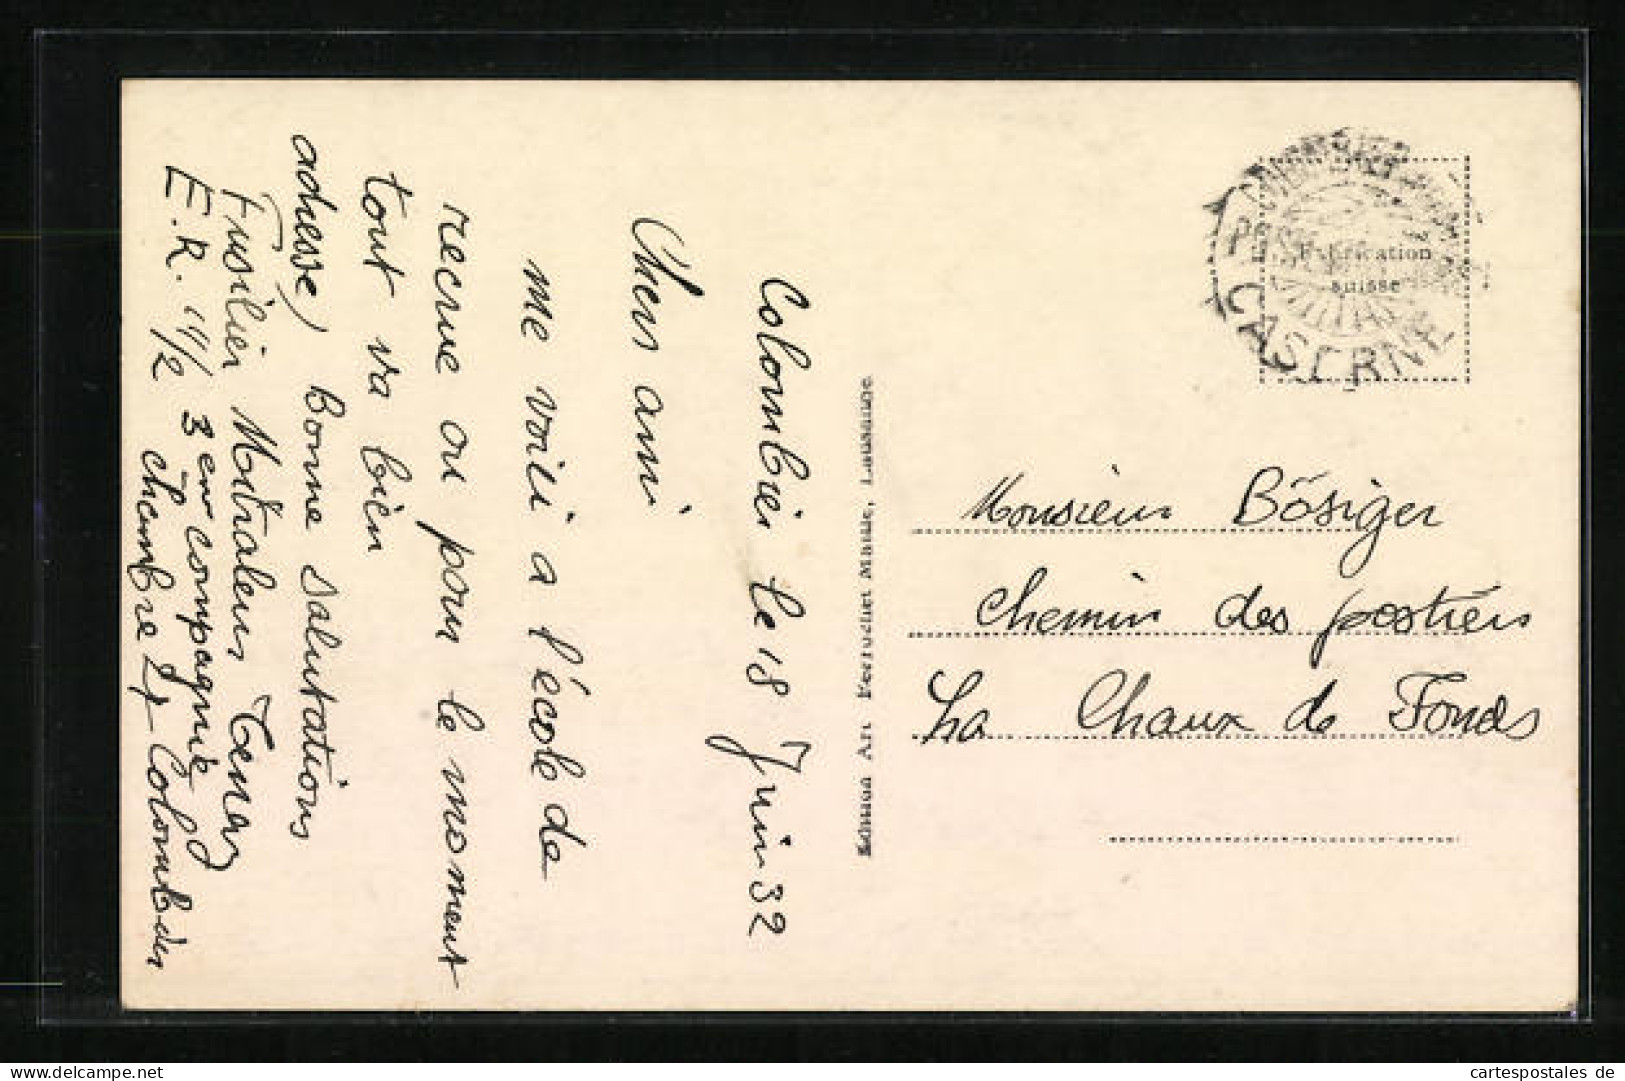 Colombier le 18 Juin 32
Chers ami
me voici a l'école de
recrue ou pour le moment
tout va bien
adresse) Bonne salutations
Fusilier Mitraleur
E.R. III/2 3em compagnie
chambre Colombier
Edition Art. Perrochet Matile, Lausanne.
CASERNE
Fabrication
suisse
Monsieur Bösiger
Chemin des postiers
La Chaux de Fonds
cartespostales de